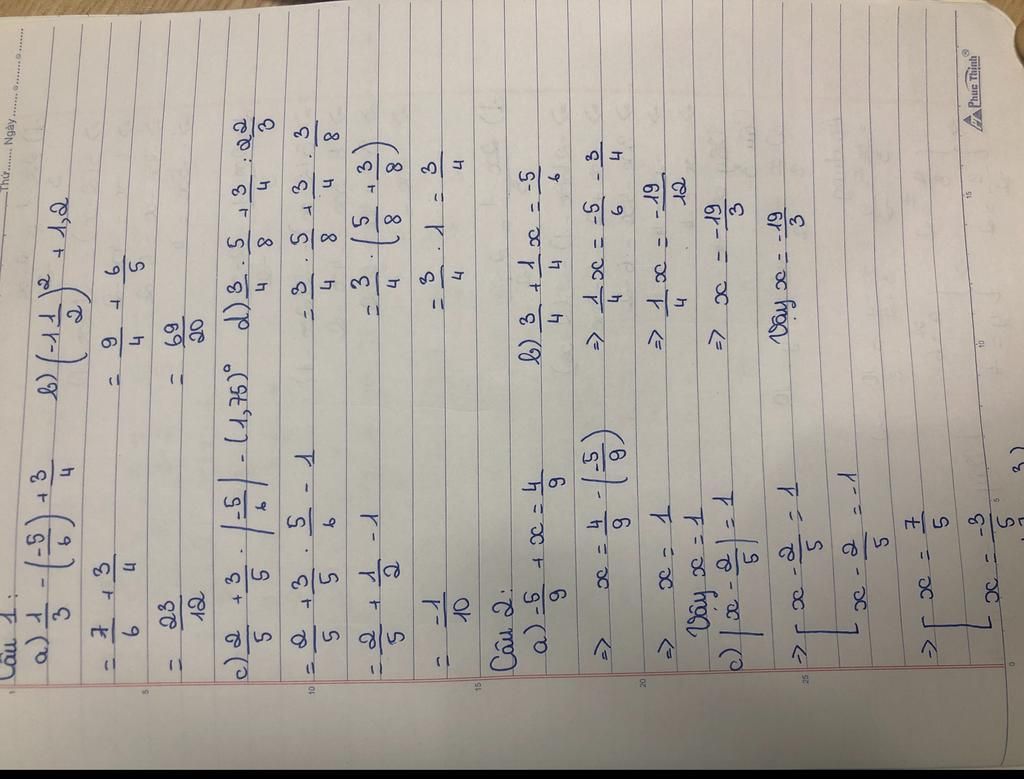 Thứ....... Ngày.......
Câu 1:
a) 1/3 - (-5/6) + 3/4
= 7/6 + 3/4
= 23/12
b) (-1 1/2)² + 1,2
= 9/4 + 6/5
= 69/20
c) 2/5 + 3/5 . |-5/6| - (1,75)⁰
= 2/5 + 3/5 . 5/6 - 1
= 2/5 + 1/2 - 1
= -1/10
d) 3/4 . 5/8 + 3/4 : 22/3
= 3/4 . 5/8 + 3/4 . 3/8
= 3/4 . (5/8 + 3/8)
= 3/4 . 1 = 3/4
Câu 2:
a) -5/9 + x = 4/9
=> x = 4/9 - (-5/9)
=> x = 1
Vậy x = 1
b) 3/4 + 1/4 x = -5/6
=> 1/4 x = -5/6 - 3/4
=> 1/4 x = -19/12
=> x = -19/3
Vậy x = -19/3
c) |x - 2/5| = 1
=> [ x - 2/5 = 1
x - 2/5 = -1
=> [ x = 7/5
x = -3/5
Phúc Thịnh®